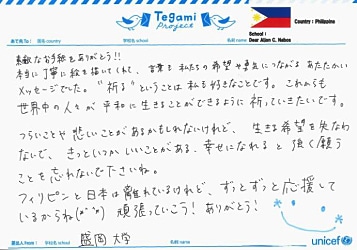 Tegami
Project
Country : Philippine
あて先To :
国名 country
学校名 school
名前 name
School I
Dear Allan C. Nabos
素敵なお手紙をありがとう!!
本当に丁寧に絵を描いてくれて、言葉も私たちの希望や勇気につながるあたたかい
メッセージでした。"祈る"ということは私も好きなことです。これからも
世界中の人々が平和に生きることができるように祈っていきたいです。
つらいことや悲しいことがあるかもしれないけれど、生きる希望を失なわ
ないで、きっといつかいいことがある、幸せになれると強く願う
ことを忘れないで下さいね。
フィリピンと日本は離れているけれど、ずっとずっと応援して
いるからね(*^^*) 頑張っていこう! ありがとう!
盛岡大学
差出人From :
国名 country
学校名 school
名前 name
unicef